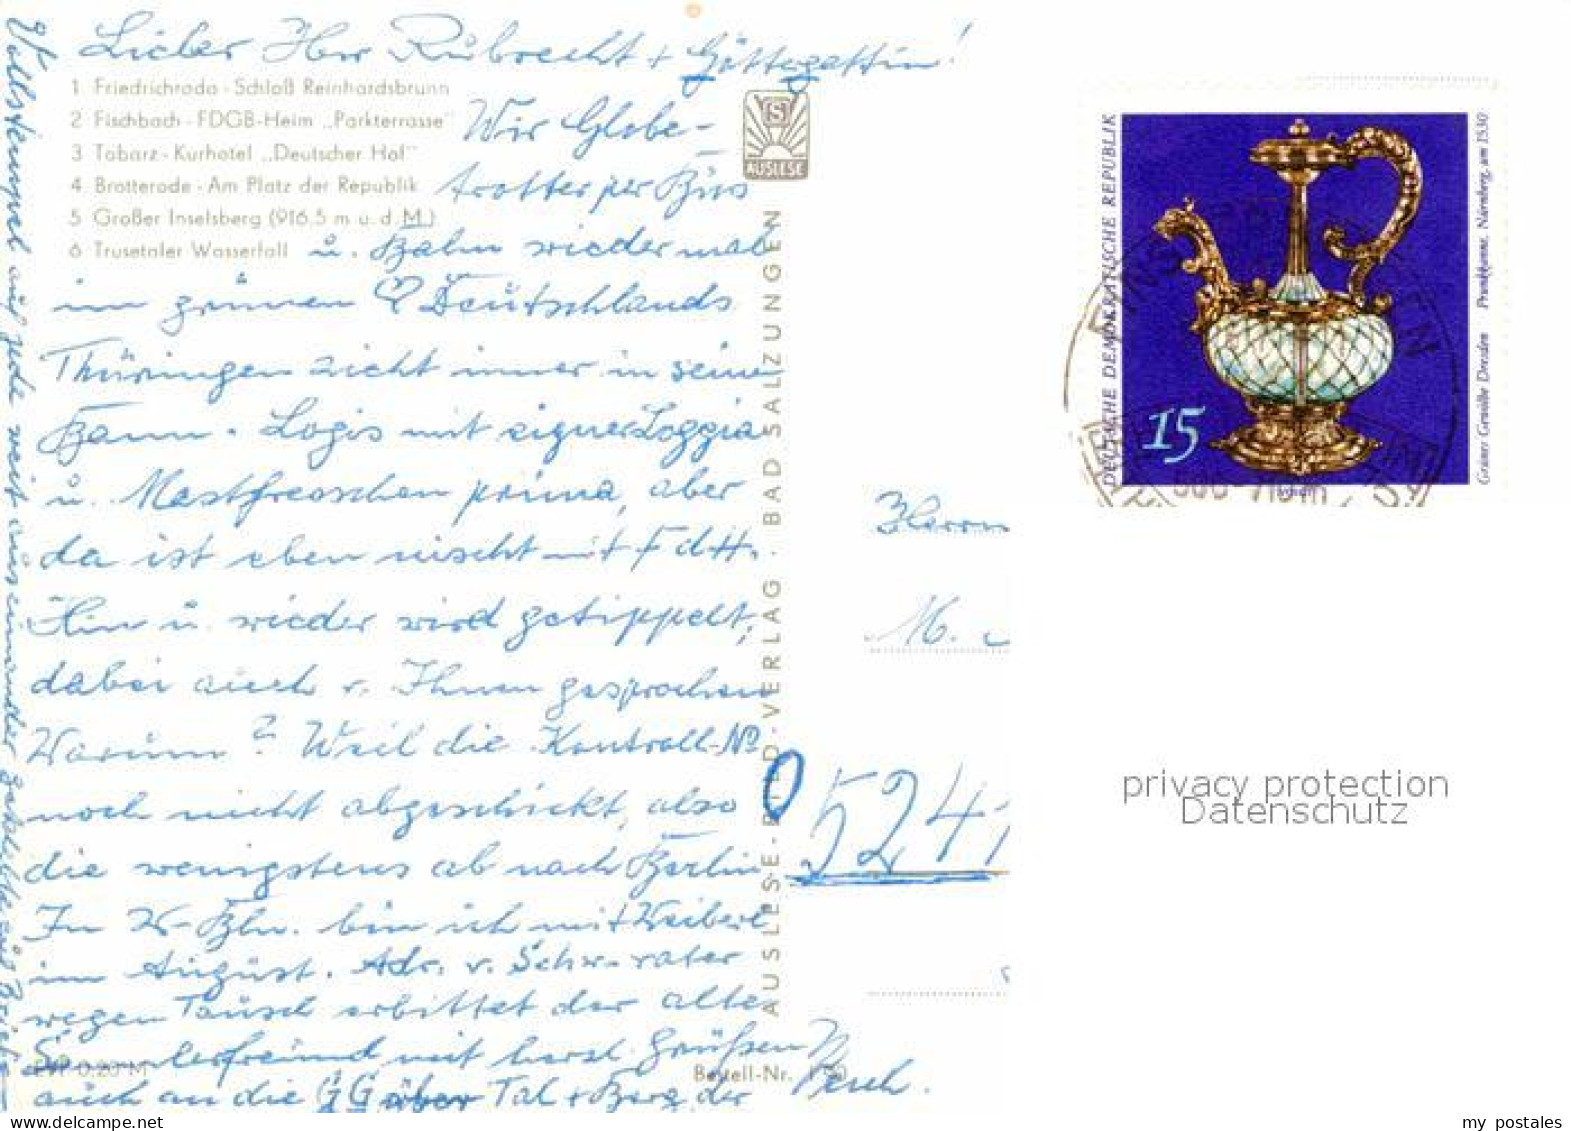 Lieber Herr Rubrecht + Göttergattin!
1 Friedrichroda - Schloß Reinhardsbrunn
2 Fischbach - FDGB-Heim „Parkterrasse"
3 Tabarz - Kurhotel „Deutscher Hof"
4 Brotterode - Am Platz der Republik
5 Großer Inselsberg (916,5 m ü. d. M.)
6 Trusetaler Wasserfall
Wir Globe-
trotter per Bus
u. Bahn wieder mal
im grünen ♡ Deutschlands
Thüringen zieht immer in seinen
Bann. Logis mit eigner Loggia
u. prima, aber
da ist eben nischt mit FdH.
Hin u. wieder wird getippelt,
dabei auch v. Ihnen gesprochen
Warum? Weil die Kontroll-No
noch nicht abgeschickt, also
die wenigstens ab nach Berlin
In W-Bln. bin ich mit Weiberl
im August. Adr. v. Schw-vater
wegen Tausch erbittet der alte
Sammlerfreund mit herzl. Grüßen
auch an die GG über Tal + Berg der
Vollstempel auf jede weit auseinander geklebte
EVP 0,20 M
Bestell-Nr.
AUSLESE-BILD-VERLAG · BAD SALZUNGEN
S
AUSLESE
Herrn
M.
0
5241
DEUTSCHE DEMOKRATISCHE REPUBLIK
15
Grünes Gewölbe Dresden Prunkkanne, Nürnberg, um 1530
privacy protection
Datenschutz
my postales